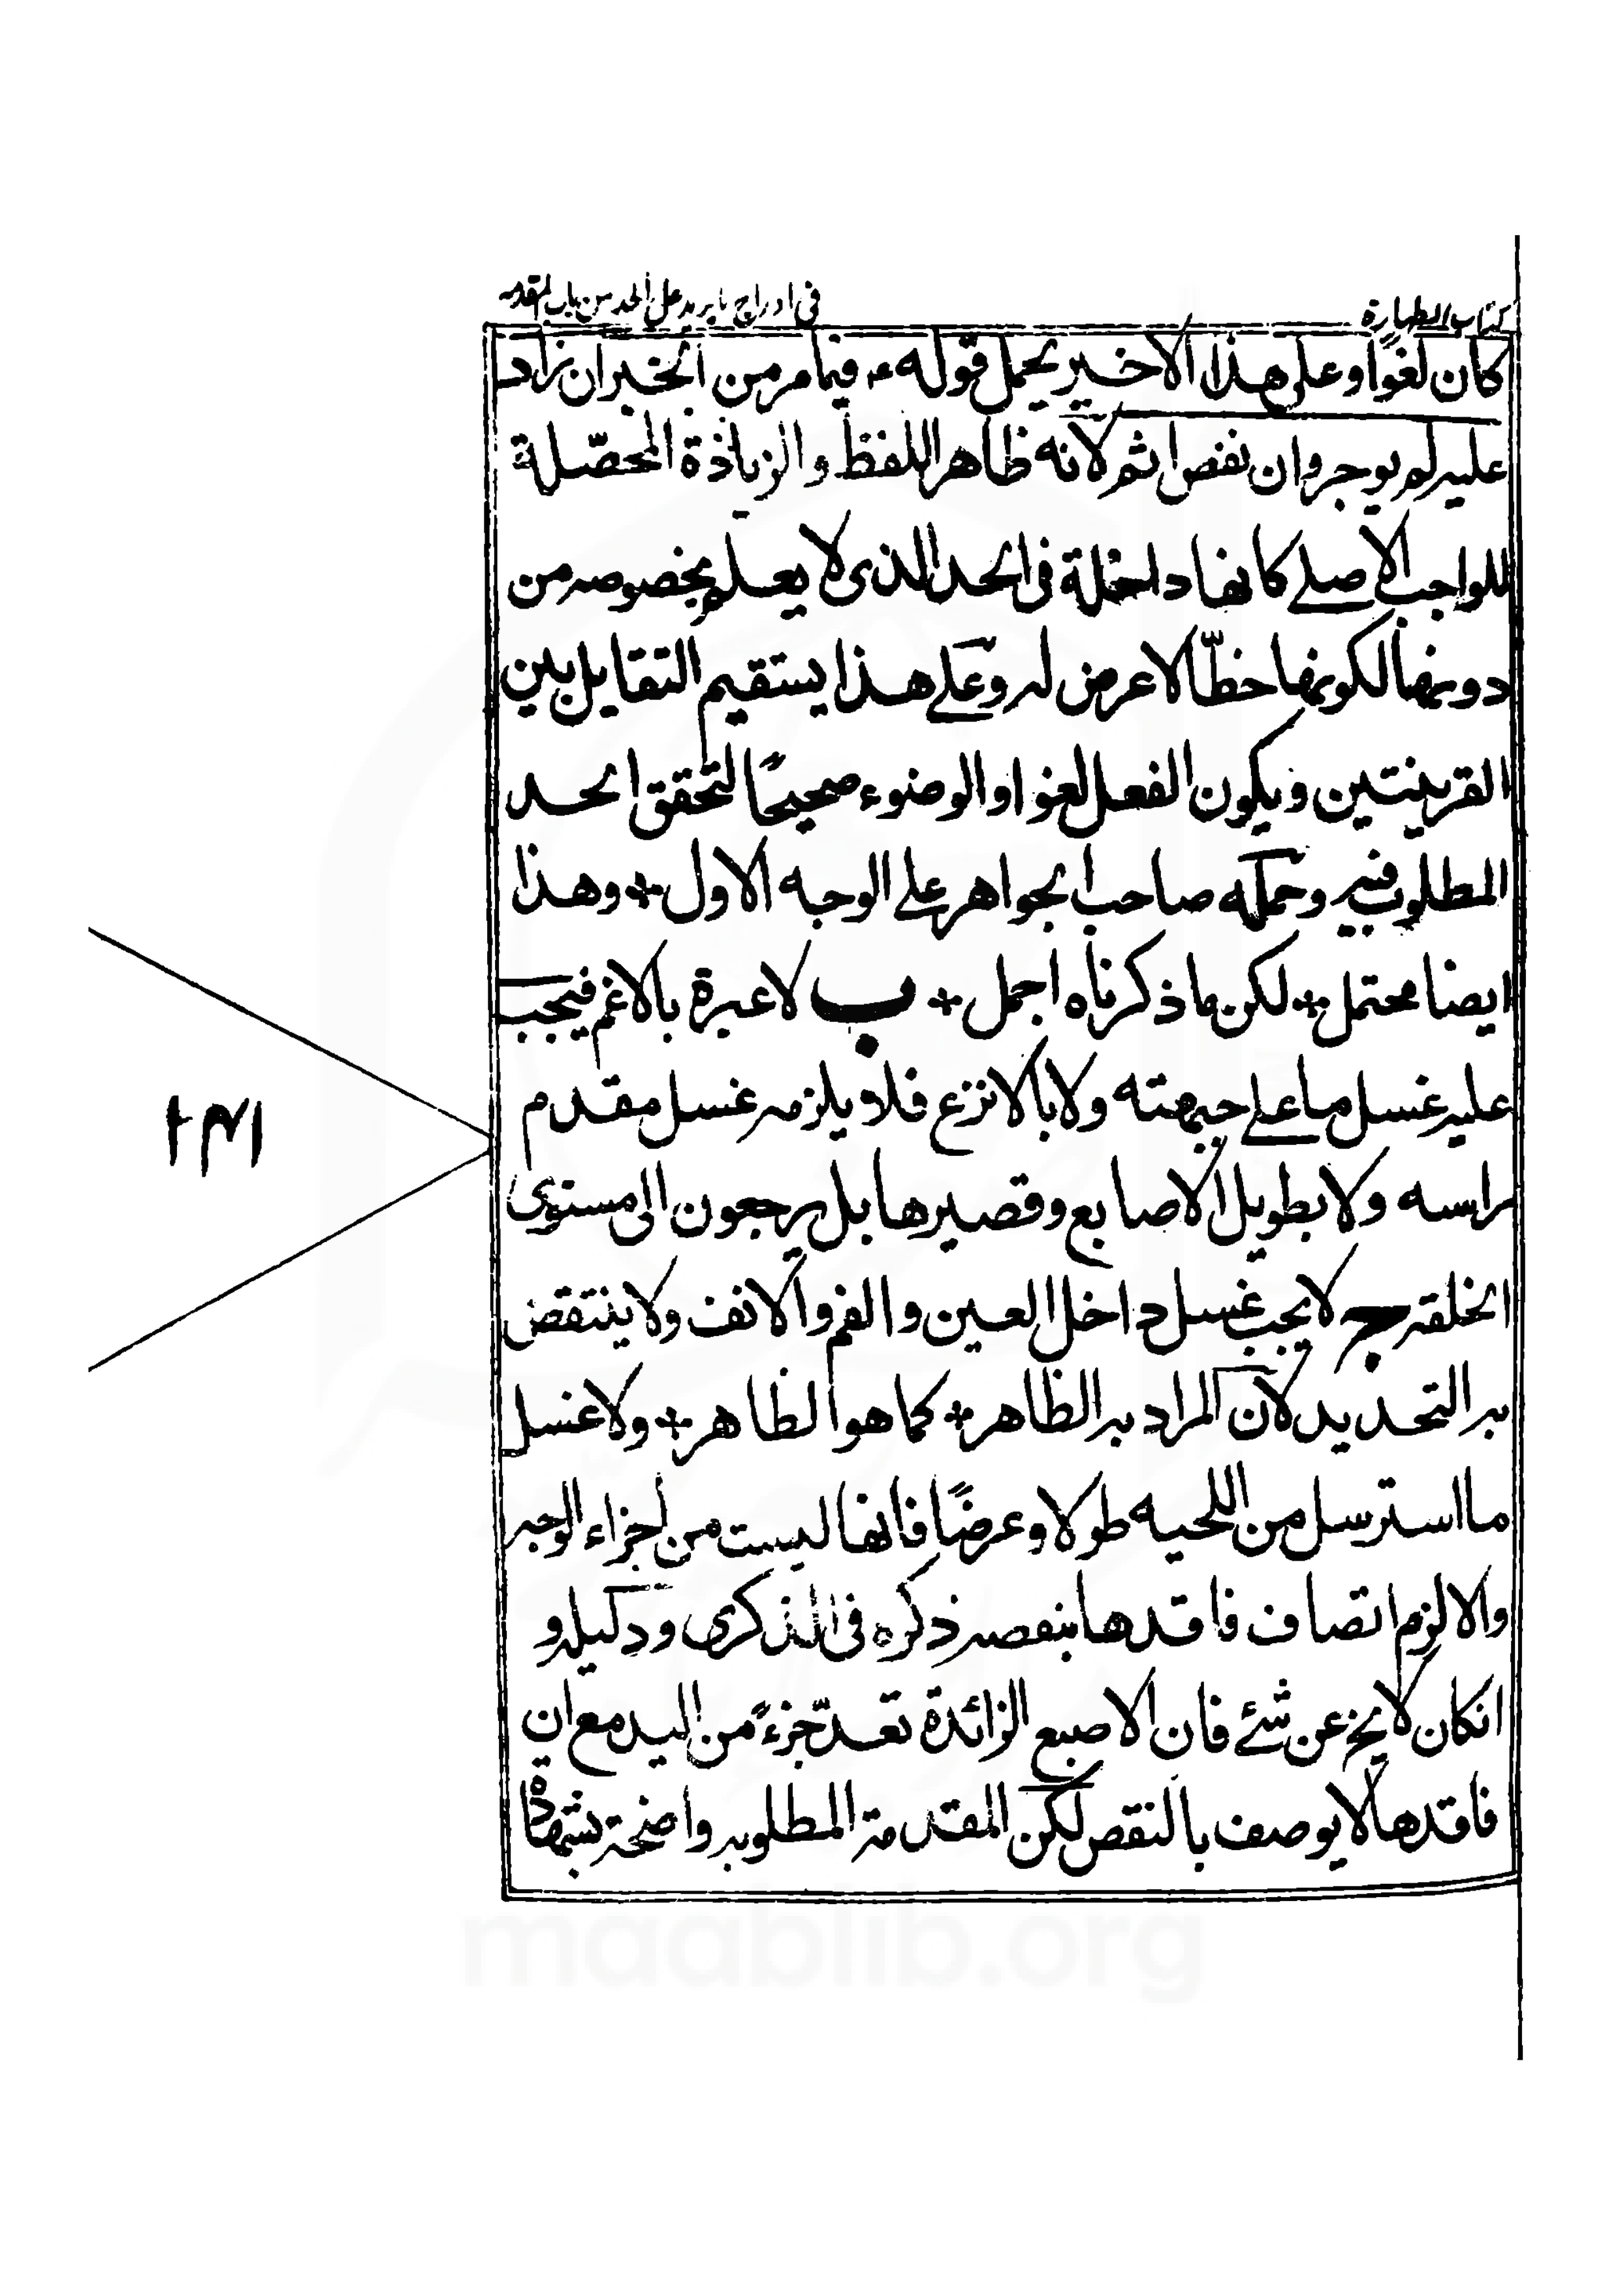 كتاب الطهارة
في ادراج ما يزيد على الحد من باب المقدمه
كان لغوًا وعلى هذا الاخير يحمل قوله ع فيما مر من الخبر ان زاد
عليه لم يوجر وان نقص اثم لانه ظاهر اللفظ والزيادة المحصّلة
للواجب الاصلے كانها داخلة في الحد الذى لا يعلم بخصوصه من
دونها لكونها خطّا لا عرض له وعلى هذا يستقيم التقابل بين
القرينتين ويكون الفعل لغوا والوضوء صحيحًا لتحقق الحد
المطلوب فيه وحمله صاحب الجواهر على الوجه الاول + وهذا
ايضا محتمل + لكن ما ذكرناه اجمل + ب لا عبرة بالاغم فيجب
عليه غسل ما علے جبهته ولا بالانزع فلا يلزمه غسل مقدم
راسه ولا بطويل الاصابع وقصيرها بل يرجعون الى مستوى
الخلقة ج لا يجب غسل داخل العين والفم والانف ولا ينتقض
به التحديد لان المراد به الظاهر + كما هو الظاهر + ولا غسل
ما استرسل من اللحيه طولا وعرضًا فانها ليست من اجزاء الوجه
والا لزم اتصاف فاقدها بنقصه ذكره في الذكرى ودليله و
انكان لا يخ عن شئے فان الاصبع الزائدة تعدّ جزءً من اليد مع ان
فاقدها لا يوصف بالنقص لكن المقدمة المطلوبه واضحة بشهادة
١٣١
maablib.org